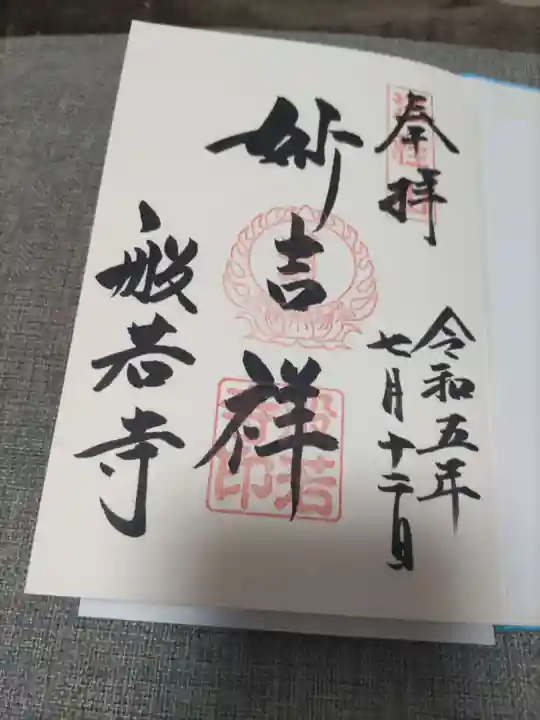 奉拝
令和五年
七月十二日
妙吉祥
般若寺
般若
寺印